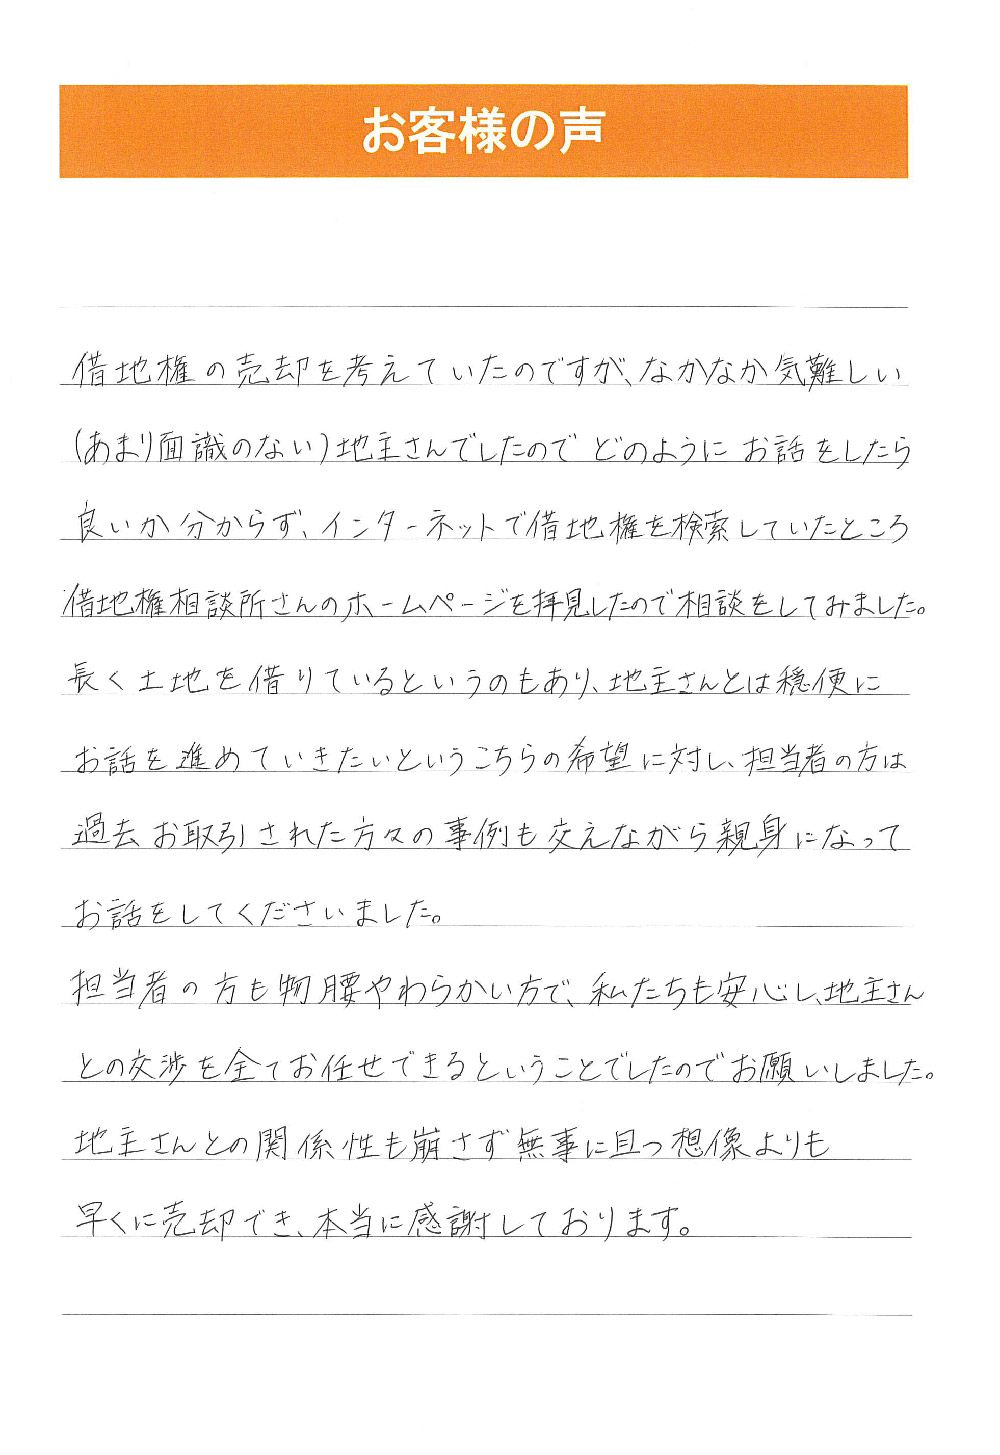 お客様の声
借地権の売却を考えていたのですが、なかなか気難しい
(あまり面識のない)地主さんでしたので どのように お話をしたら
良いか分からず、インターネットで借地権を検索していたところ
借地権相談所さんのホームページを拝見したので相談をしてみました。
長く土地を借りているというのもあり、地主さんとは穏便に
お話を進めていきたいというこちらの希望に対し、担当者の方は
過去お取引された方々の事例も交えながら親身になって
お話をしてくださいました。
担当者の方も物腰やわらかい方で、私たちも安心し、地主さん
との交渉を全てお任せできるということでしたのでお願いしました。
地主さんとの関係性も崩さず無事に且つ想像よりも
早くに売却でき、本当に感謝しております。